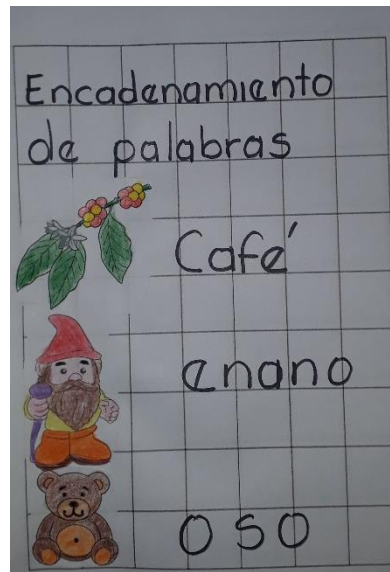 Encadenamiento
de palabras
Café
enano
oso